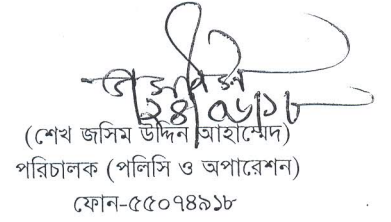 ২৪/০৬/১৮
(শেখ জসিম উদ্দিন আহাম্মেদ)
পরিচালক (পলিসি ও অপারেশন)
ফোন-৫৫০৭৪৯১৮